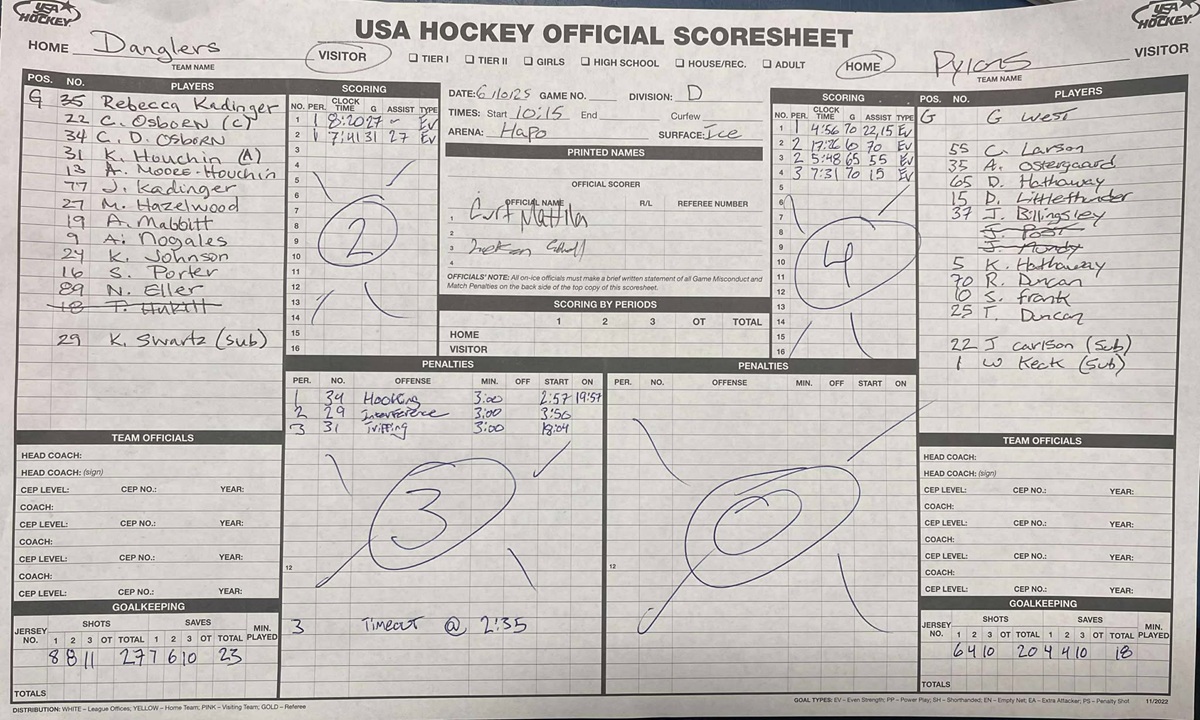 USA HOCKEY
USA HOCKEY OFFICIAL SCORESHEET
USA HOCKEY
HOME Danglers
TEAM NAME
VISITOR
TIER I TIER II GIRLS HIGH SCHOOL HOUSE/REC. ADULT
HOME
Pylons
TEAM NAME
VISITOR
POS. NO. PLAYERS
G 35 Rebecca Kadinger
22 C. OSBORN (C)
34 C. D. OSBORN
31 K. Houchin (A)
13 A. Moore-Houchin
77 J. Kadinger
27 M. Hazelwood
19 A. Mabbitt
9 A. Nogales
24 K. Johnson
16 S. Porter
89 N. Eller
18 T. Hukill
29 K. Swartz (sub)
SCORING
NO. PER. CLOCK TIME G ASSIST TYPE
1 1 8:20 27 - EV
2 1 7:41 31 27 EV
3
4
5
6
7
8
9
10
11
12
13
14
15
16
2
DATE: 6/10/25 GAME NO. DIVISION: D
TIMES: Start 10:15 End Curfew
ARENA: Hapo SURFACE: Ice
PRINTED NAMES
OFFICIAL SCORER
OFFICIAL NAME R/L REFEREE NUMBER
1 Curt Mattila
2
3
4
OFFICIALS' NOTE: All on-ice officials must make a brief written statement of all Game Misconduct and
Match Penalties on the back side of the top copy of this scoresheet.
SCORING BY PERIODS
1 2 3 OT TOTAL
HOME
VISITOR
SCORING
NO. PER. CLOCK TIME G ASSIST TYPE
1 1 4:56 70 22,15 EV
2 2 17:26 10 70 EV
3 2 5:48 65 55 EV
4 3 7:31 70 15 EV
6
7
8
9
10
11
12
13
14
15
16
4
POS. NO. PLAYERS
G G West
55 C. Larson
35 A. Ostergaard
65 D. Hathaway
15 D. Littlethunder
37 J. Billingsley
J. Post
J. Mundy
5 K. Hathaway
70 R. Duncan
10 S. Frank
25 T. Duncan
22 J Carlson (Sub)
1 W Keck (Sub)
PENALTIES
PER. NO. OFFENSE MIN. OFF START ON
1 34 Hooking 3:00 2:57 19:57
2 29 Interference 3:00 3:56
3 31 Tripping 3:00 18:04
3
12
3 Timeout @ 2:35
PENALTIES
PER. NO. OFFENSE MIN. OFF START ON
0
12
TEAM OFFICIALS
HEAD COACH:
HEAD COACH: (sign)
CEP LEVEL: CEP NO.: YEAR:
COACH:
CEP LEVEL: CEP NO.: YEAR:
COACH:
CEP LEVEL: CEP NO.: YEAR:
COACH:
CEP LEVEL: CEP NO.: YEAR:
GOALKEEPING
JERSEY NO. SHOTS SAVES MIN. PLAYED
1 2 3 OT TOTAL 1 2 3 OT TOTAL
8 8 11 27 7 6 10 23
TOTALS
TEAM OFFICIALS
HEAD COACH:
HEAD COACH: (sign)
CEP LEVEL: CEP NO.: YEAR:
COACH:
CEP LEVEL: CEP NO.: YEAR:
COACH:
CEP LEVEL: CEP NO.: YEAR:
COACH:
CEP LEVEL: CEP NO.: YEAR:
GOALKEEPING
JERSEY NO. SHOTS SAVES MIN. PLAYED
1 2 3 OT TOTAL 1 2 3 OT TOTAL
6 4 10 20 4 4 10 18
TOTALS
DISTRIBUTION: WHITE – League Offices; YELLOW – Home Team; PINK – Visiting Team; GOLD – Referee
GOAL TYPES: EV – Even Strength; PP – Power Play; SH – Shorthanded; EN – Empty Net; EA – Extra Attacker; PS – Penalty Shot 11/2022